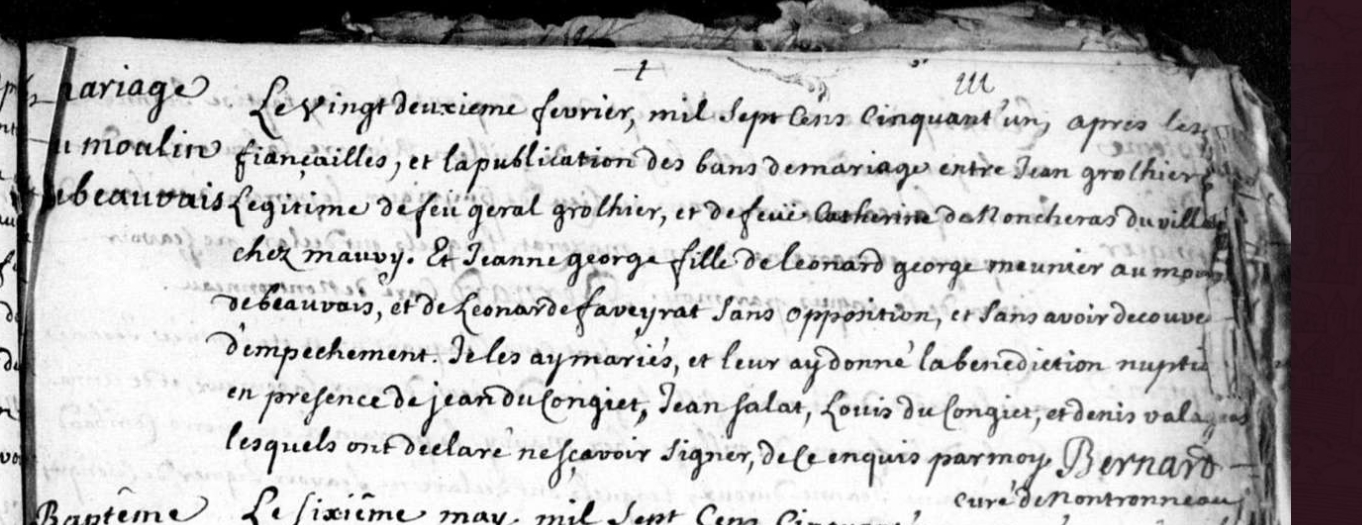 mariage
Le vingt deuxieme fevrier, mil sept Cens Cinquant'un, apres les
au moulin
fiançailles, et la publication des bans de mariage entre Jean grolhier
de beauvais
Legitime de feü geral grolhier, et de feuë Catherine de Noncheras du villa
chez mauvy. Et Jeanne george fille de leonard george meunier au mou
de beauvais, et de Leonarde faveyrat sans opposition, et sans avoir decouve
d'empechement. Je les ay mariés, et leur ay donné la benediction nuptia
en presence de jean du Congiet, Jean salat, Louis du Congiet, et denis
lesquels ont declaré ne sçavoir signer, de Ce enquis par moy. Bernard
Curé de Montronneau
Baptême
Le sixiême may, mil sept Cens